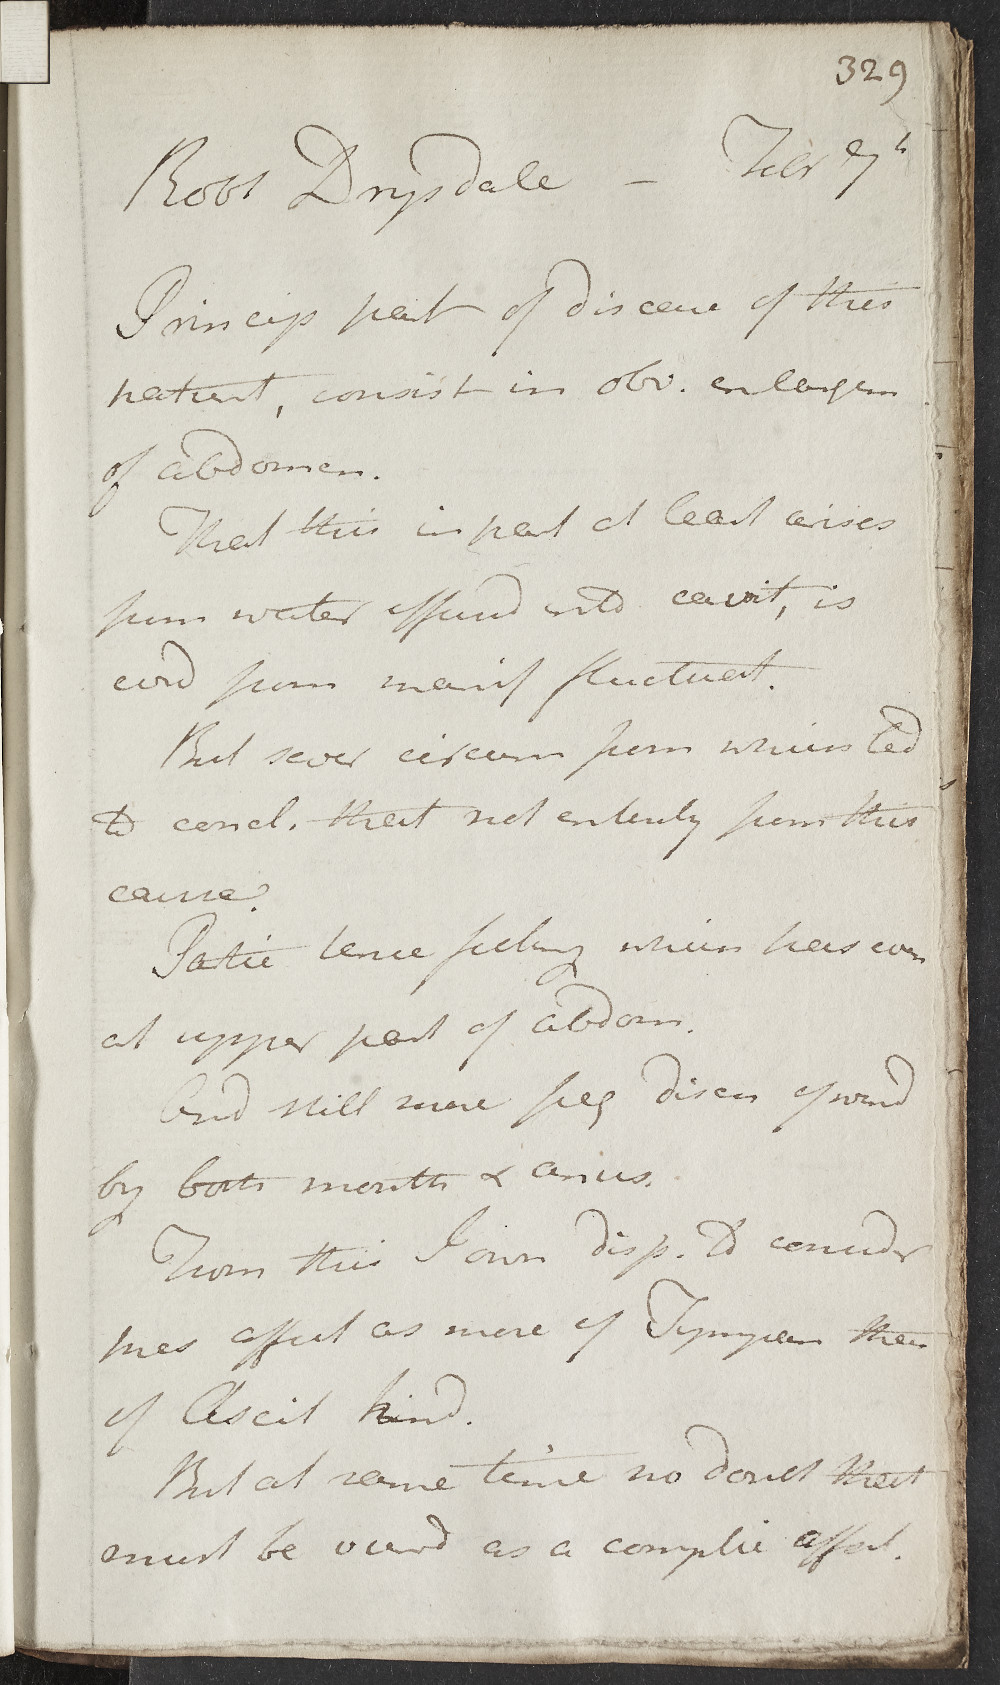 329
Robt Drysdale — Febr 7h
Princip part of disease of this
patient, consist in obv. enlargem
of abdomen.
That this in part at least arises
from water effused into cavit, is
evid from manif fluctuat.
But sever circum from whien led
to concl. that not entirely from this
cause.
Patic tense feeling whien
at upper part of abdom.
And still more freq disch of wind
by both mouth & anus.
From this I own disp. to consider
pres affect as more of Tympan than
of Ascit kind.
But at same time no doubt that
must be viewd as a complic affect.